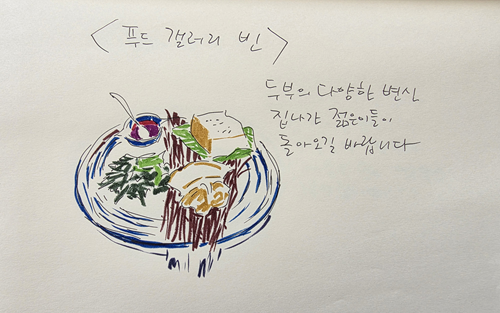 <푸드 갤러리 빈>
두부의 다양한 변신
집나간 젊은이들이
돌아오길 바랍니다